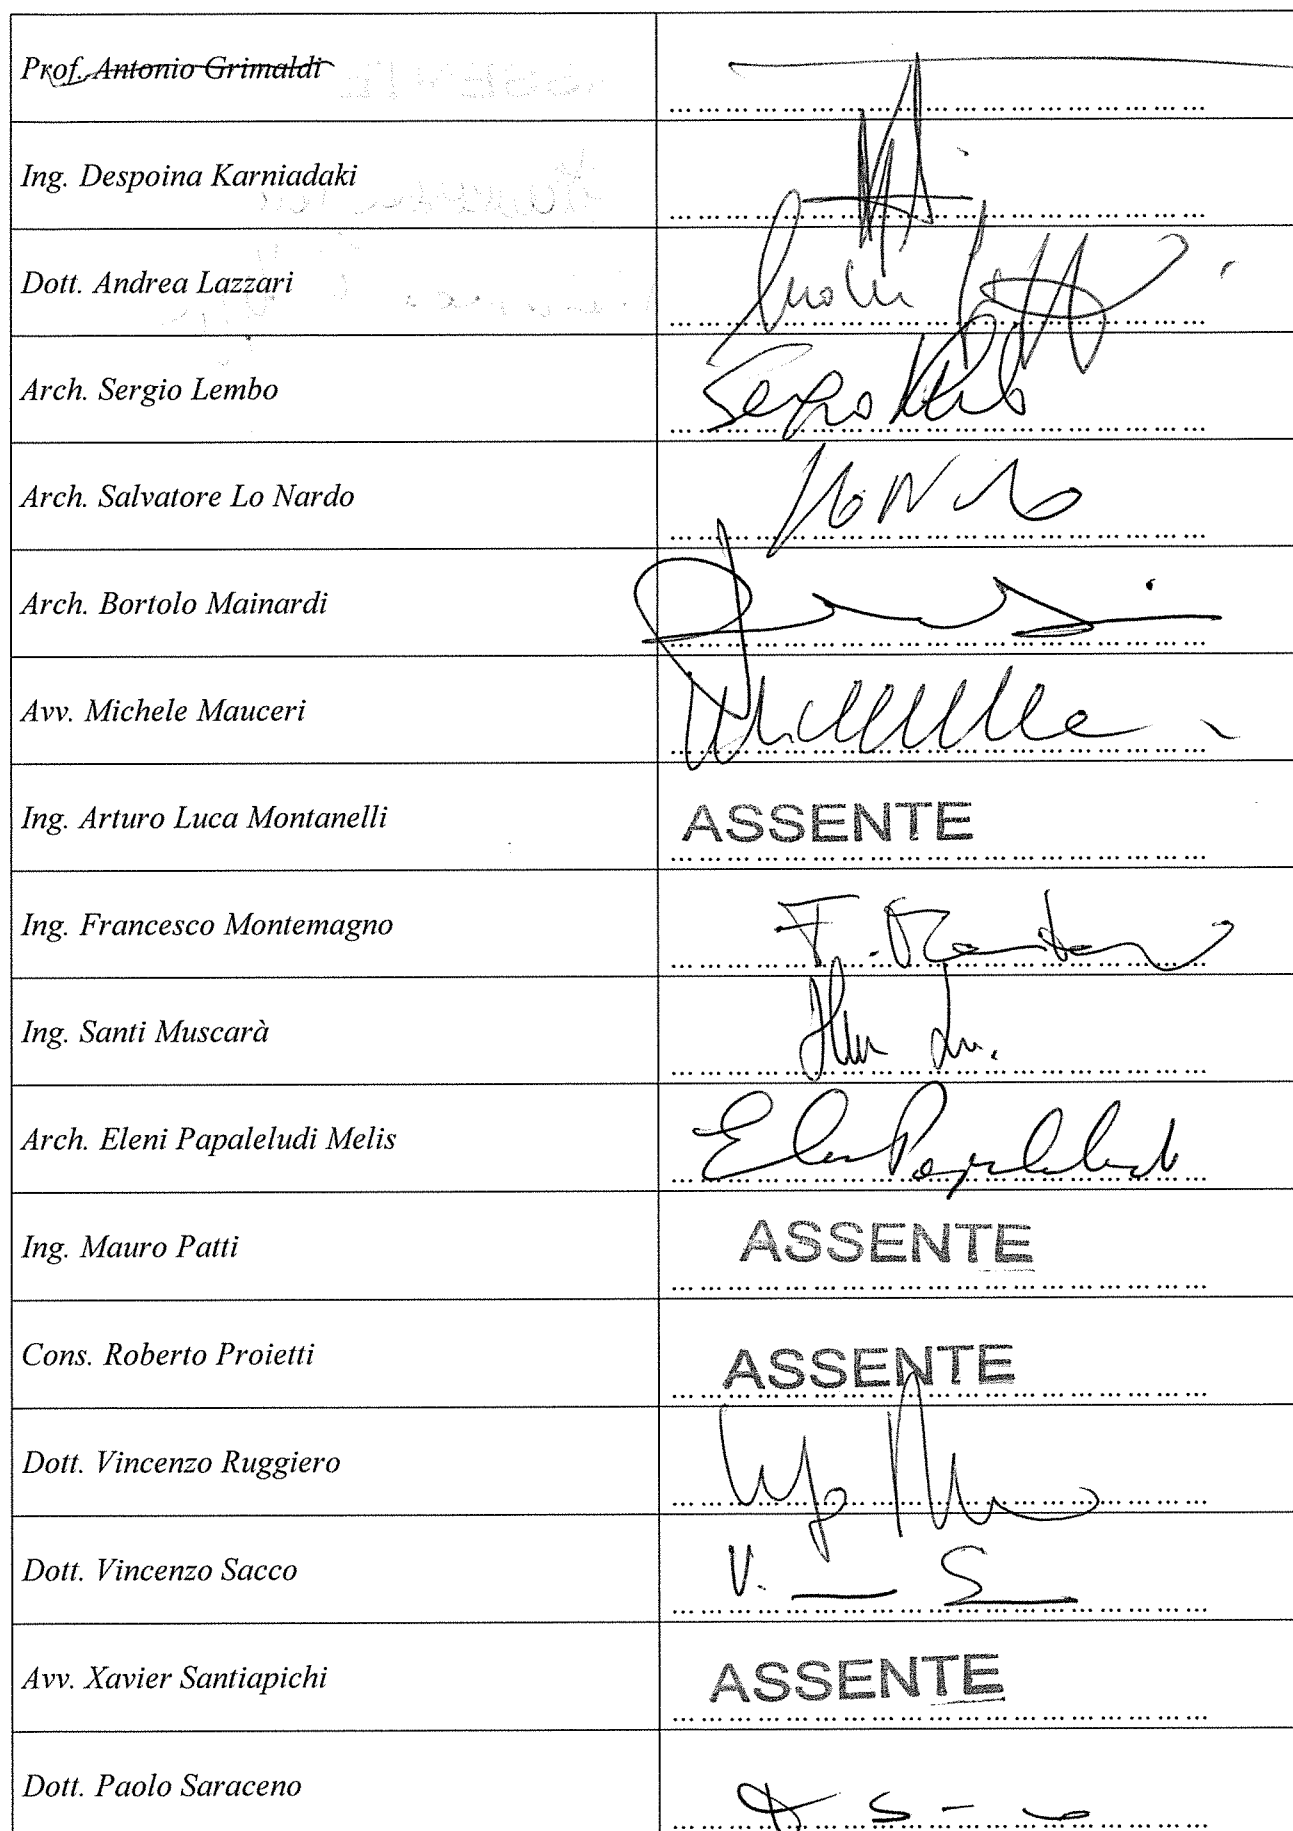 Prof. Antonio Grimaldi
Ing. Despoina Karniadaki
Dott. Andrea Lazzari
Arch. Sergio Lembo
Arch. Salvatore Lo Nardo
Arch. Bortolo Mainardi
Avv. Michele Mauceri
Ing. Arturo Luca Montanelli ASSENTE
Ing. Francesco Montemagno
Ing. Santi Muscarà
Arch. Eleni Papaleludi Melis
Ing. Mauro Patti ASSENTE
Cons. Roberto Proietti ASSENTE
Dott. Vincenzo Ruggiero
Dott. Vincenzo Sacco
Avv. Xavier Santiapichi ASSENTE
Dott. Paolo Saraceno